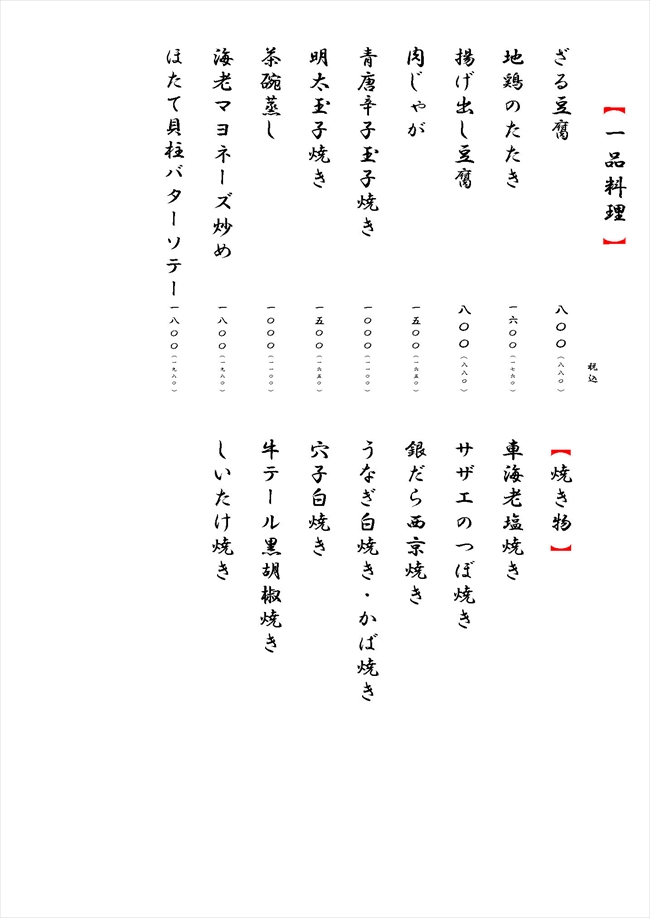 【一品料理】
税込
ざる豆腐 八〇〇(八八〇)
地鶏のたたき 一六〇〇(一七六〇)
揚げ出し豆腐 八〇〇(八八〇)
肉じゃが 一五〇〇(一六五〇)
青唐辛子玉子焼き 一〇〇〇(一一〇〇)
明太玉子焼き 一五〇〇(一六五〇)
茶碗蒸し 一〇〇〇(一一〇〇)
海老マヨネーズ炒め 一八〇〇(一九八〇)
ほたて貝柱バターソテー 一八〇〇(一九八〇)
【焼き物】
車海老塩焼き
サザエのつぼ焼き
銀だら西京焼き
うなぎ白焼き・かば焼き
穴子白焼き
牛テール黒胡椒焼き
しいたけ焼き